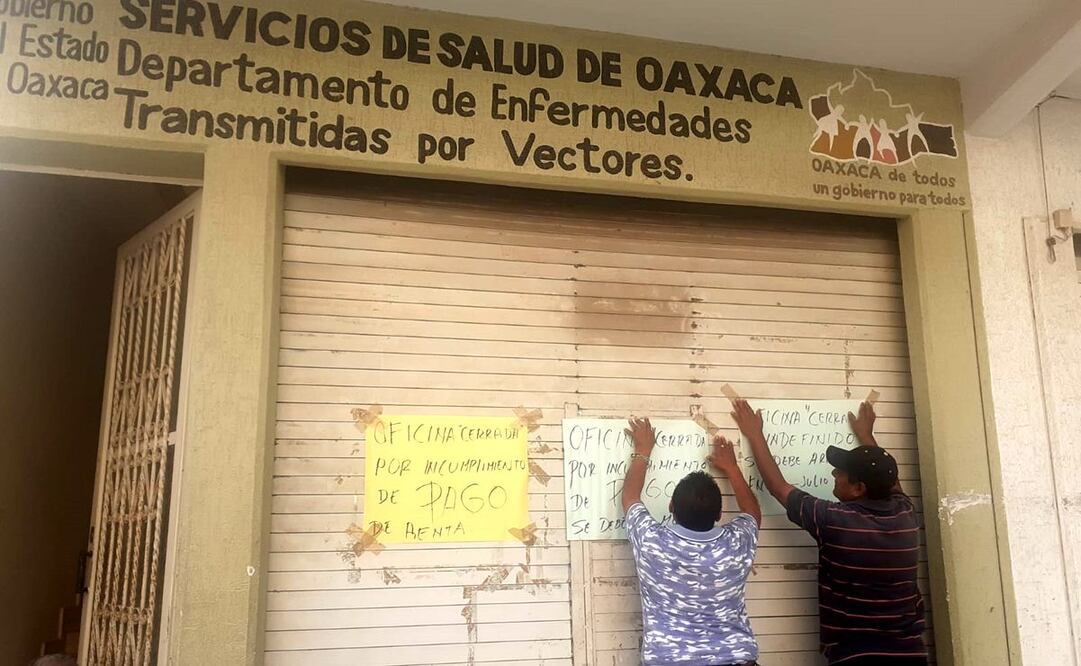 Gobierno
l Estado
Oaxaca
SERVICIOS DE SALUD DE OAXACA
Departamento de Enfermedades
Transmitidas por Vectores.
OAXACA de todos
un gobierno para todos
OFICINA "CERRADA"
POR INCUMPLIMIENTO
DE PAGO
DE RENTA
OFICIN CERRADA
POR INCUMPLIMIENTO
DE PAGO
SE DEBE
OFICINA "CERRA
INDEFINIDO
SE DEBE AR
EN JULIO